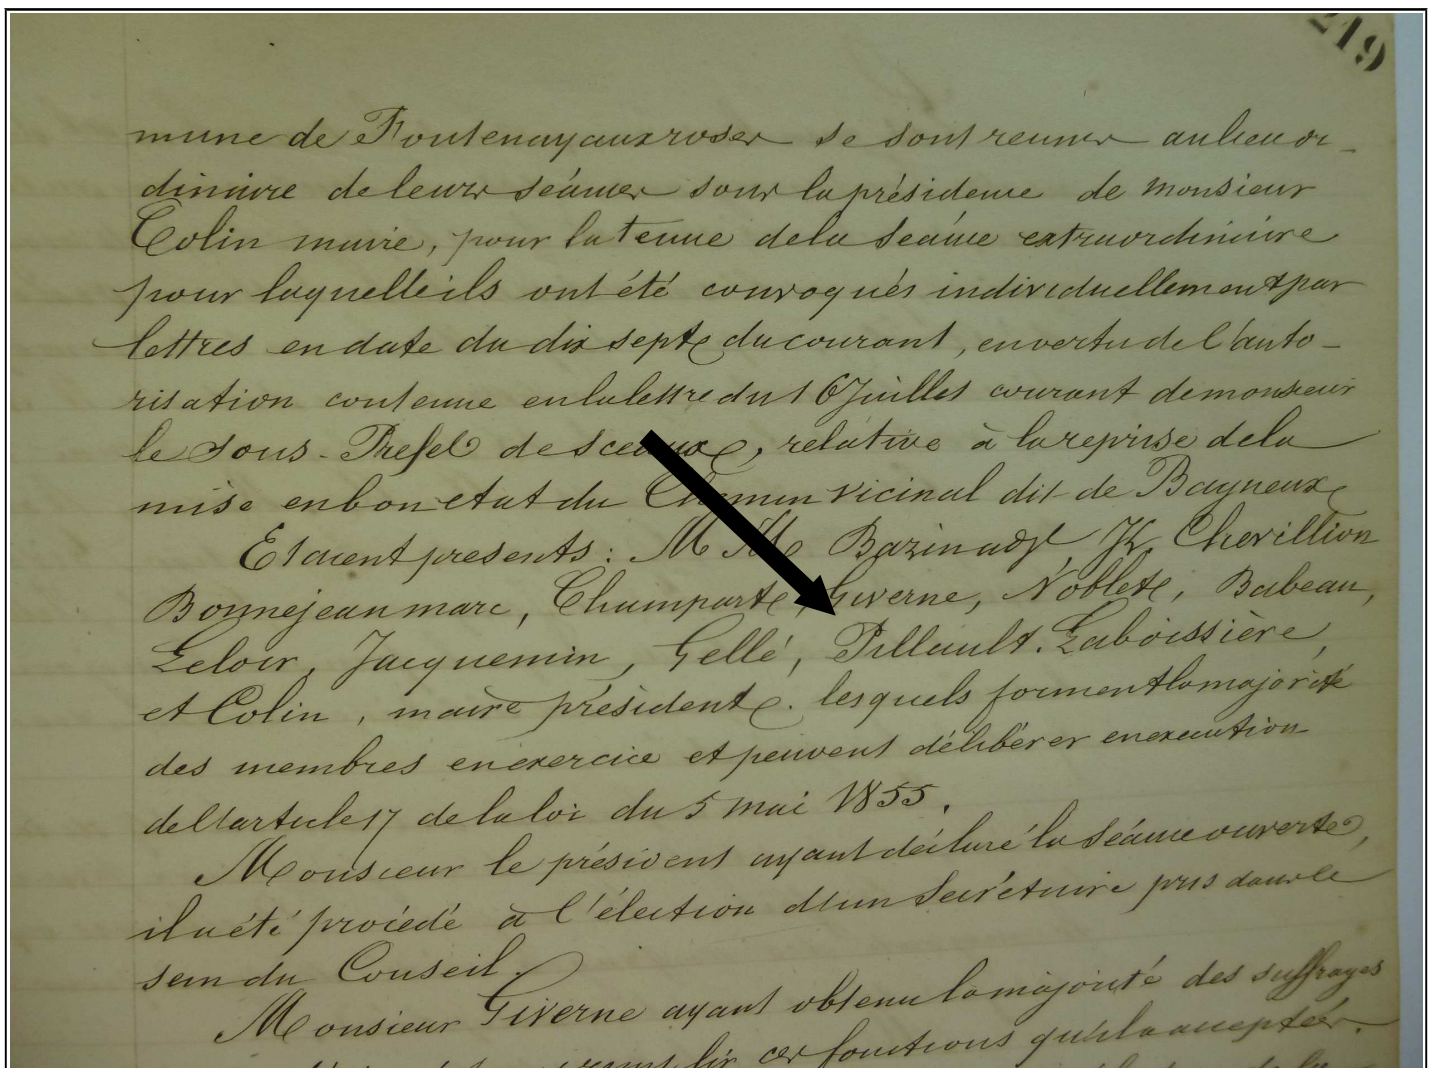 219
mune de Fontenay aux roses se sont reunis au lieu or-
dinaire de leurs séances sous la présidence de monsieur
Colin maire, pour la tenue de la séance extraordinaire
pour laquelle ils ont été convoqués individuellement par
lettres en date du dix sept du courant, en vertu de l'auto-
risation contenue en la lettre du 16 Juillet courant de monsieur
le Sous-Prefet de Sceaux, relative à la reprise de la
mise en bon etat du Chemin vicinal dit de Bagneux
Etaient presents: M M Bazin Chevillion
Bonnejean marc, Champart, Giverne, Noblet, Babeau,
Leloir, Jacquemin, Gellé, Pillault. Laboissière,
et Colin, maire président. lesquels forment la majorité
des membres en exercice et peuvent délibérer en execution
de l'article 17 de la loi du 5 mai 1855.
Monsieur le président ayant déclaré la séance ouverte,
il a été procédé à l'élection d'un Secrétaire pris dans le
sein du Conseil.
Monsieur Giverne ayant obtenu la majorité des suffrages
ces fonctions qu'il a acceptées.